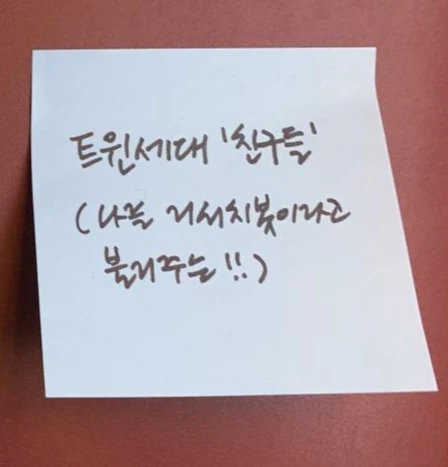 트윈세대 '친구들'
(나를 리서치봇이라고
불러주는!!)